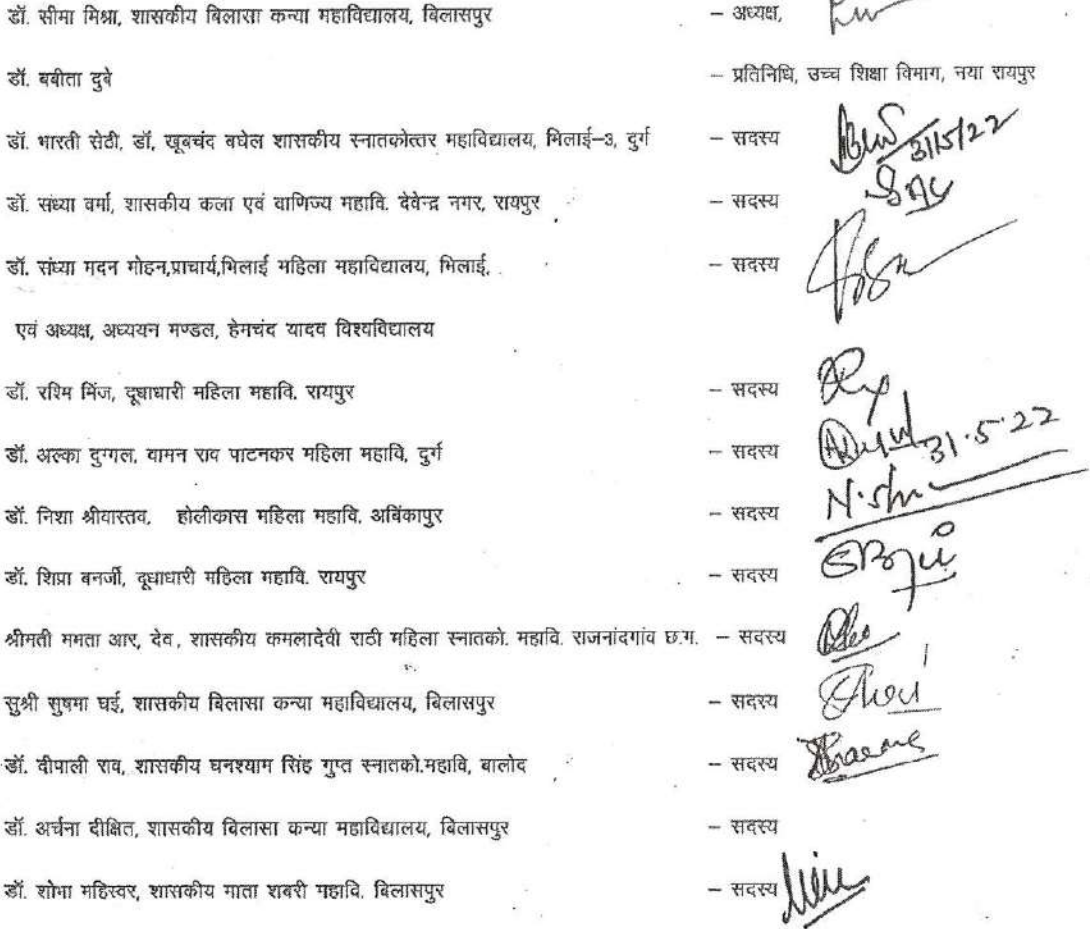 डॉ. सीमा मिश्रा, शासकीय बिलासा कन्या महाविद्यालय, बिलासपुर – अध्यक्ष,
डॉ. बबीता दुबे – प्रतिनिधि, उच्च शिक्षा विभाग, नया रायपुर
डॉ. भारती सेठी, डॉ, खूबचंद बघेल शासकीय स्नातकोत्तर महाविद्यालय, भिलाई–3, दुर्ग – सदस्य 31/5/22
डॉ. संध्या वर्मा, शासकीय कला एवं वाणिज्य महावि. देवेन्द्र नगर, रायपुर – सदस्य
डॉ. संध्या मदन मोहन,प्राचार्य,भिलाई महिला महाविद्यालय, भिलाई, – सदस्य
एवं अध्यक्ष, अध्ययन मण्डल, हेमचंद यादव विश्यविद्यालय
डॉ. रश्मि मिंज, दूधाधारी महिला महावि. रायपुर – सदस्य
डॉ. अल्का दुग्गल, वामन राव पाटनकर महिला महावि, दुर्ग – सदस्य 31.5.22
डॉ. निशा श्रीवास्तव, होलीकास महिला महावि. अबिंकापुर – सदस्य
डॉ. शिप्रा बनर्जी, दूधाधारी महिला महावि. रायपुर – सदस्य
श्रीमती ममता आर, देव, शासकीय कमलादेवी राठी महिला स्नातको. महावि. राजनांदगांव छ.ग. – सदस्य
सुश्री सुषमा घई, शासकीय बिलासा कन्या महाविद्यालय, बिलासपुर – सदस्य
डॉ. दीपाली राव, शासकीय घनश्याम सिंह गुप्त स्नातको.महावि, बालोद – सदस्य
डॉ. अर्चना दीक्षित, शासकीय बिलासा कन्या महाविद्यालय, बिलासपुर – सदस्य
डॉ. शोभा महिस्वर, शासकीय माता शबरी महावि. बिलासपुर – सदस्य